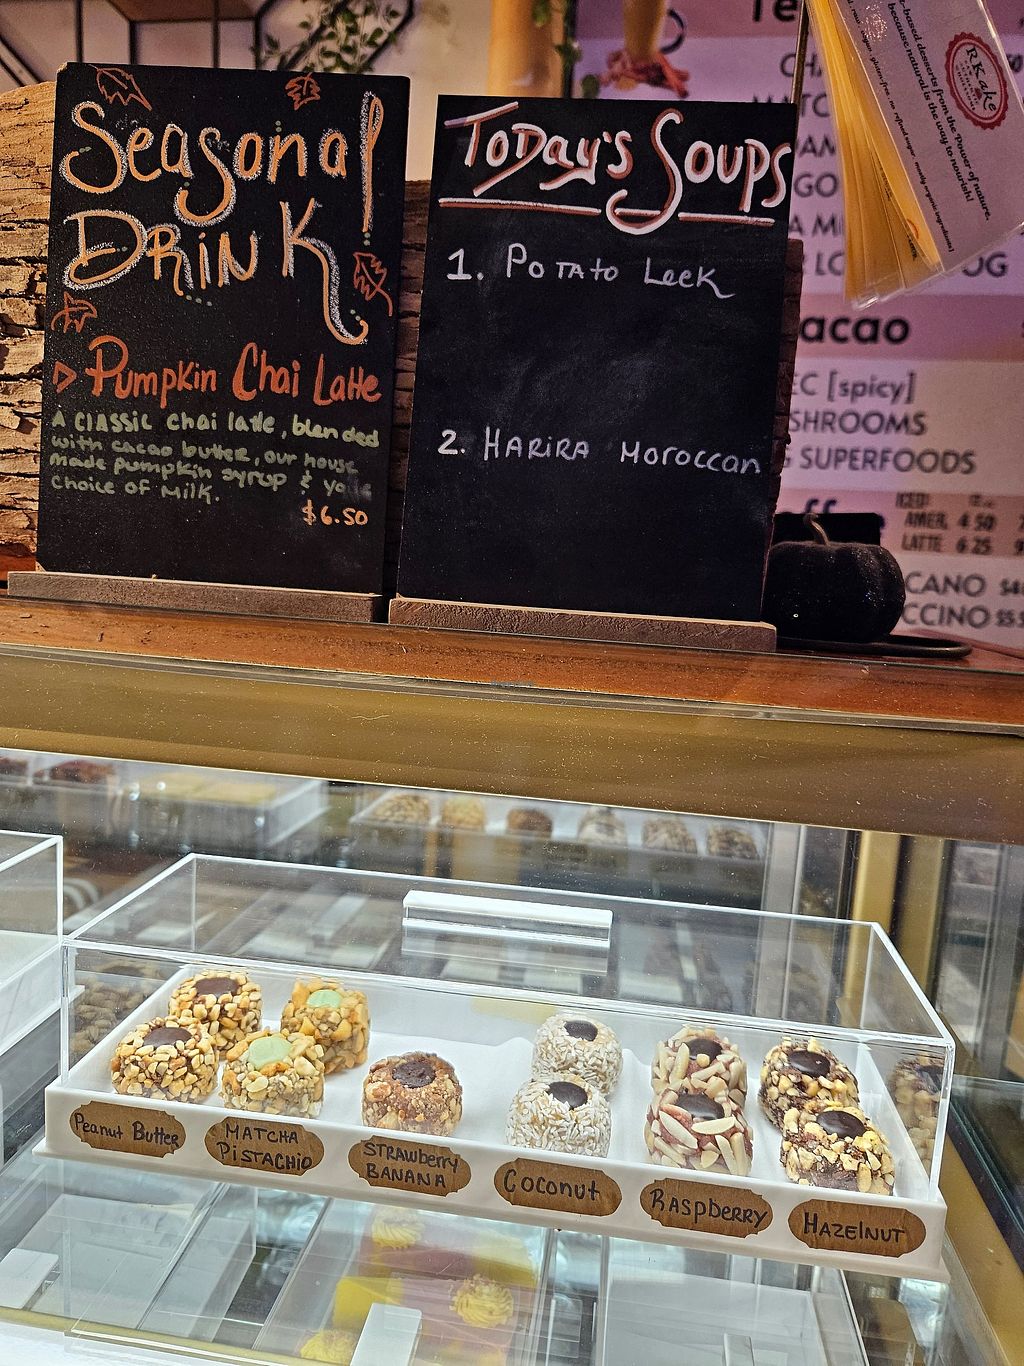 Seasonal
DRiNK
Pumpkin Chai Latte
A Classic chai latte, blended
with cacao butter, our house
made pumpkin syrup &
choice of Milk.
$6.50
Today's Soups
1. Potato Leek
2. Harira Moroccan
acao
EC [spicy]
SHROOMS
SUPERFOODS
ICED
AMER. 4 50
LATTE 6 25
CANO
CCINO
OG
RKake
-based desserts from the power of nature.
because natural is the way to nourish!
Peanut Butter
MATCHA
PiSTACHiO
STRAWBerry
BANANA
Coconut
RaspbeRRY
HAZElNUT